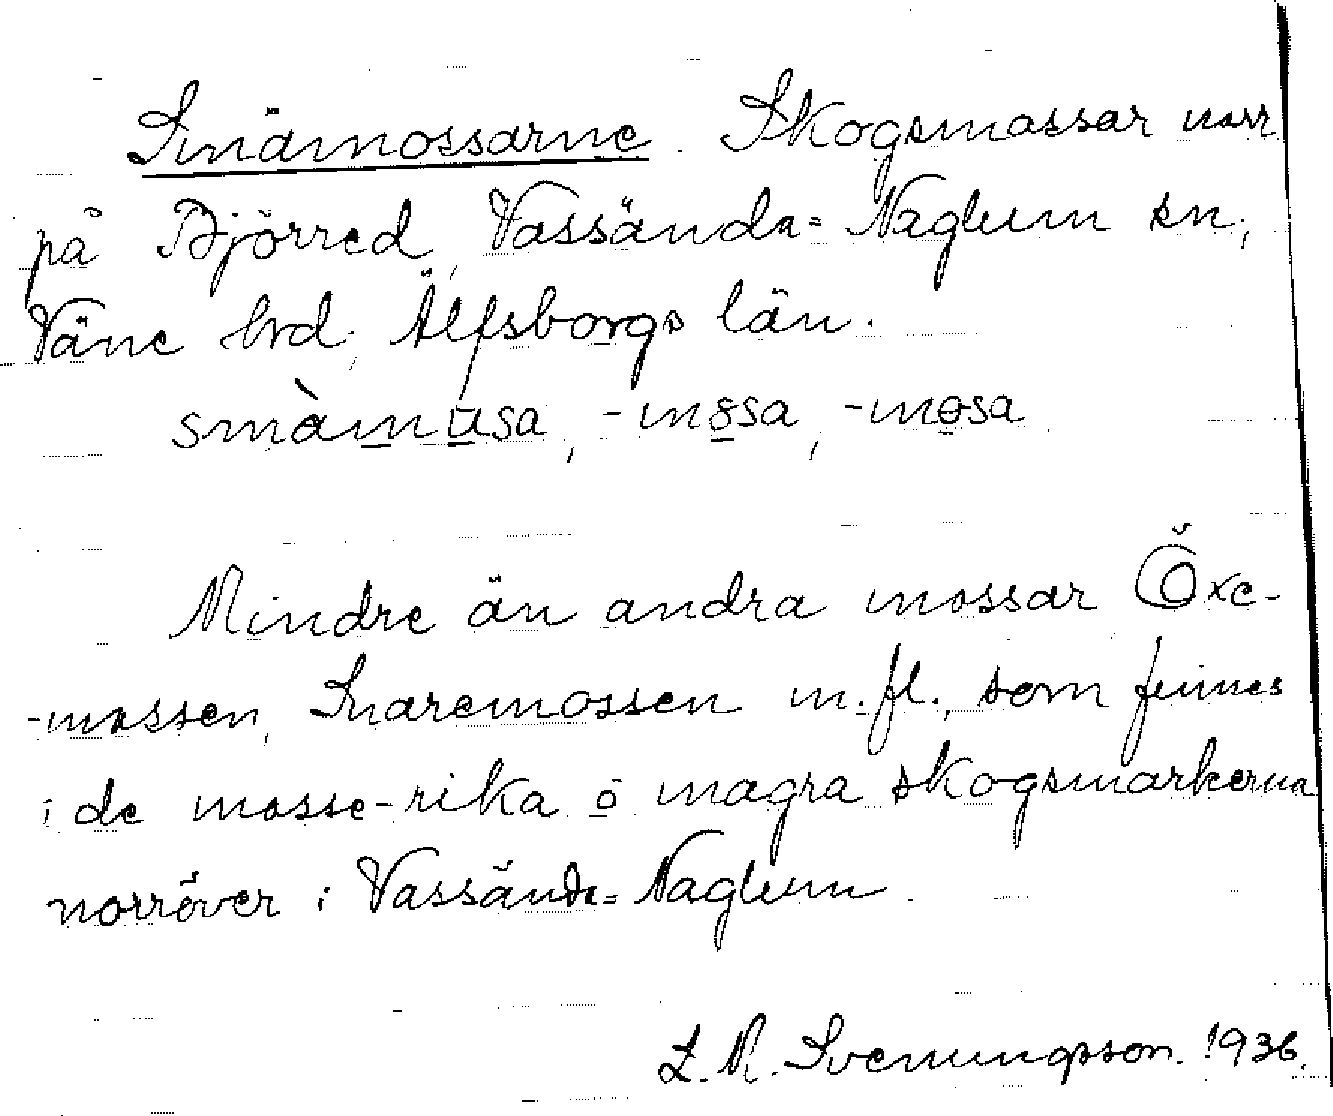 Småmossarne. Skogsmossar norr
på Björred, Vassända=Naglum sn,
Väne hrd, Älfsborgs län.
smàmusa, -mosa, -mosa
Mindre än andra mossar Öxe-
-mossen, Snaremossen m.fl., som finnes
i de mosse-rika o magra skogsmarkerna
norröver i Vassända=Naglum.
L. R. Svenungsson. 1936.